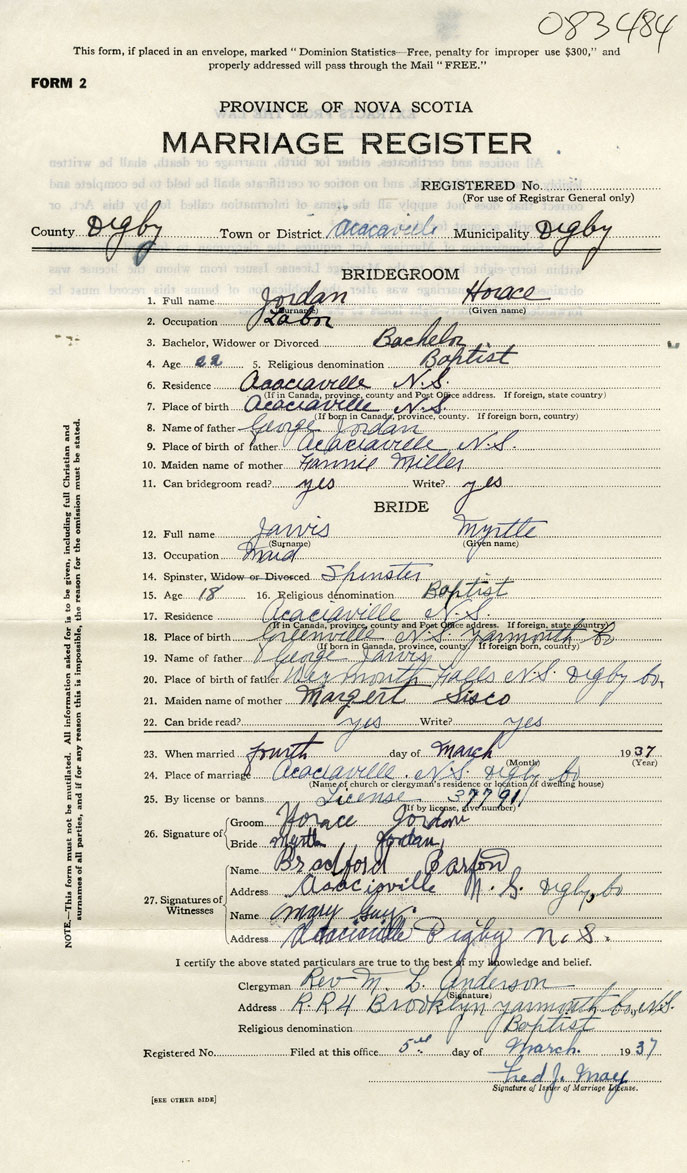 083484
This form, if placed in an envelope, marked "Dominion Statistics—Free, penalty for improper use $300," and
properly addressed will pass through the Mail "FREE."
FORM 2
PROVINCE OF NOVA SCOTIA
MARRIAGE REGISTER
REGISTERED No.
(For use of Registrar General only)
County Digby Town or District Acacaville Municipality Digby
BRIDEGROOM
1. Full name Jordan Horace
(Surname) (Given name)
2. Occupation Labor
3. Bachelor, Widower or Divorced Bachelor
4. Age 22 5. Religious denomination Baptist
6. Residence Acaciaville N.S.
(If in Canada, province, county and Post Office address. If foreign, state country)
7. Place of birth Acaciaville N.S.
(If born in Canada, province, county. If foreign born, country)
8. Name of father George Jordan
9. Place of birth of father Acaciaville N.S.
10. Maiden name of mother Fannie Miller
11. Can bridegroom read? yes Write? yes
BRIDE
12. Full name Jarvis Myrtle
(Surname) (Given name)
13. Occupation Maid
14. Spinster, Widow or Divorced Spinster
15. Age 18 16. Religious denomination Baptist
17. Residence Acaciaville N.S.
(If in Canada, province, county and Post Office address. If foreign, state country)
18. Place of birth Greenville N.S. Yarmouth Co
(If born in Canada, province, county If foreign born, country)
19. Name of father George Jarvis
20. Place of birth of father Weymouth Falls N.S. Digby Co.
21. Maiden name of mother Margert Sisco
22. Can bride read? yes Write? yes
23. When married fourth day of March 1937
(Month) (Year)
24. Place of marriage Acaciaville. N.S. Digby Co
(Name of church or clergyman's residence or location of dwelling house)
25. By license or banns License 37791
(If by license, give number)
26. Signature of
Groom Horace Jordan
Bride Myrtle Jordan
27. Signatures of Witnesses
Name Bradford Barton
Address Acaciaville N.S. Digby, Co
Name Mary Gay.
Address Acaciaville Digby N.S.
I certify the above stated particulars are true to the best of my knowledge and belief.
Clergyman Rev M. L. Anderson
(Signature)
Address R.R4 Brooklyn Yarmouth Co, N.S.
Religious denomination Baptist
Registered No. Filed at this office 5th day of March. 1937
Fred J. May
Signature of Issuer of Marriage License.
[SEE OTHER SIDE]
NOTE.—This form must not be mutilated. All information asked for is to be given, including full Christian and
surnames of all parties, and if for any reason this is impossible, the reason for the omission must be stated.